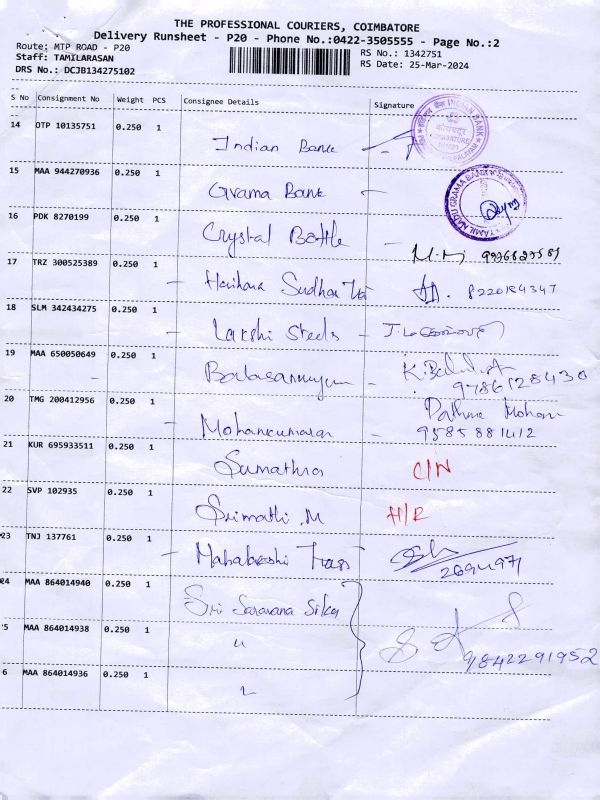 THE PROFESSIONAL COURIERS, COIMBATORE
Delivery Runsheet - P20 - Phone No.:0422-3505555 - Page No.:2
Route: MTP ROAD - P20
RS No.: 13427S1
Staff: TAMILARASAN
RS Date: 25-Mar-2024
DRS No.: DCJB134275102
S No Consignment No Weight PCS Consignee Details Signature
14 OTP 10135751 0.250 1 Indian Bank
INDIAN BANK
15 MAA 944270936 0.250 1 Grama Bank
TAMILNADU GRAMA BANK
16 PDK 8270199 0.250 1 Crystal Bottle
17 TRZ 300525389 0.250 1 Harihara Sudhan 8220184347
18 SLM 342434275 0.250 1 Lakshi Steels
19 MAA 650050649 0.250 1 9786128430
20 TMG 200412956 0.250 1 Mohankumaran
9585881412
21 KUR 695933511 0.250 1 Sumathra C/N
22 SVP 102935 0.250 1 Srimathi .M H/R
23 TNJ 137761 0.250 1
24 MAA 864014940 0.250 1 Sri Saravana
5 MAA 864014938 0.250 1 "
9842291952
6 MAA 864014936 0.250 1